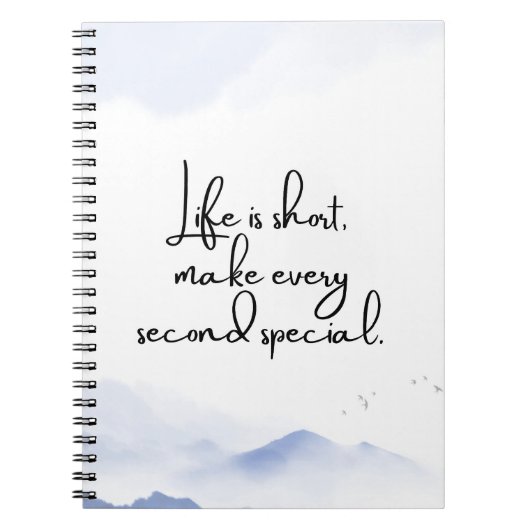 Life is short,
make every
second special.